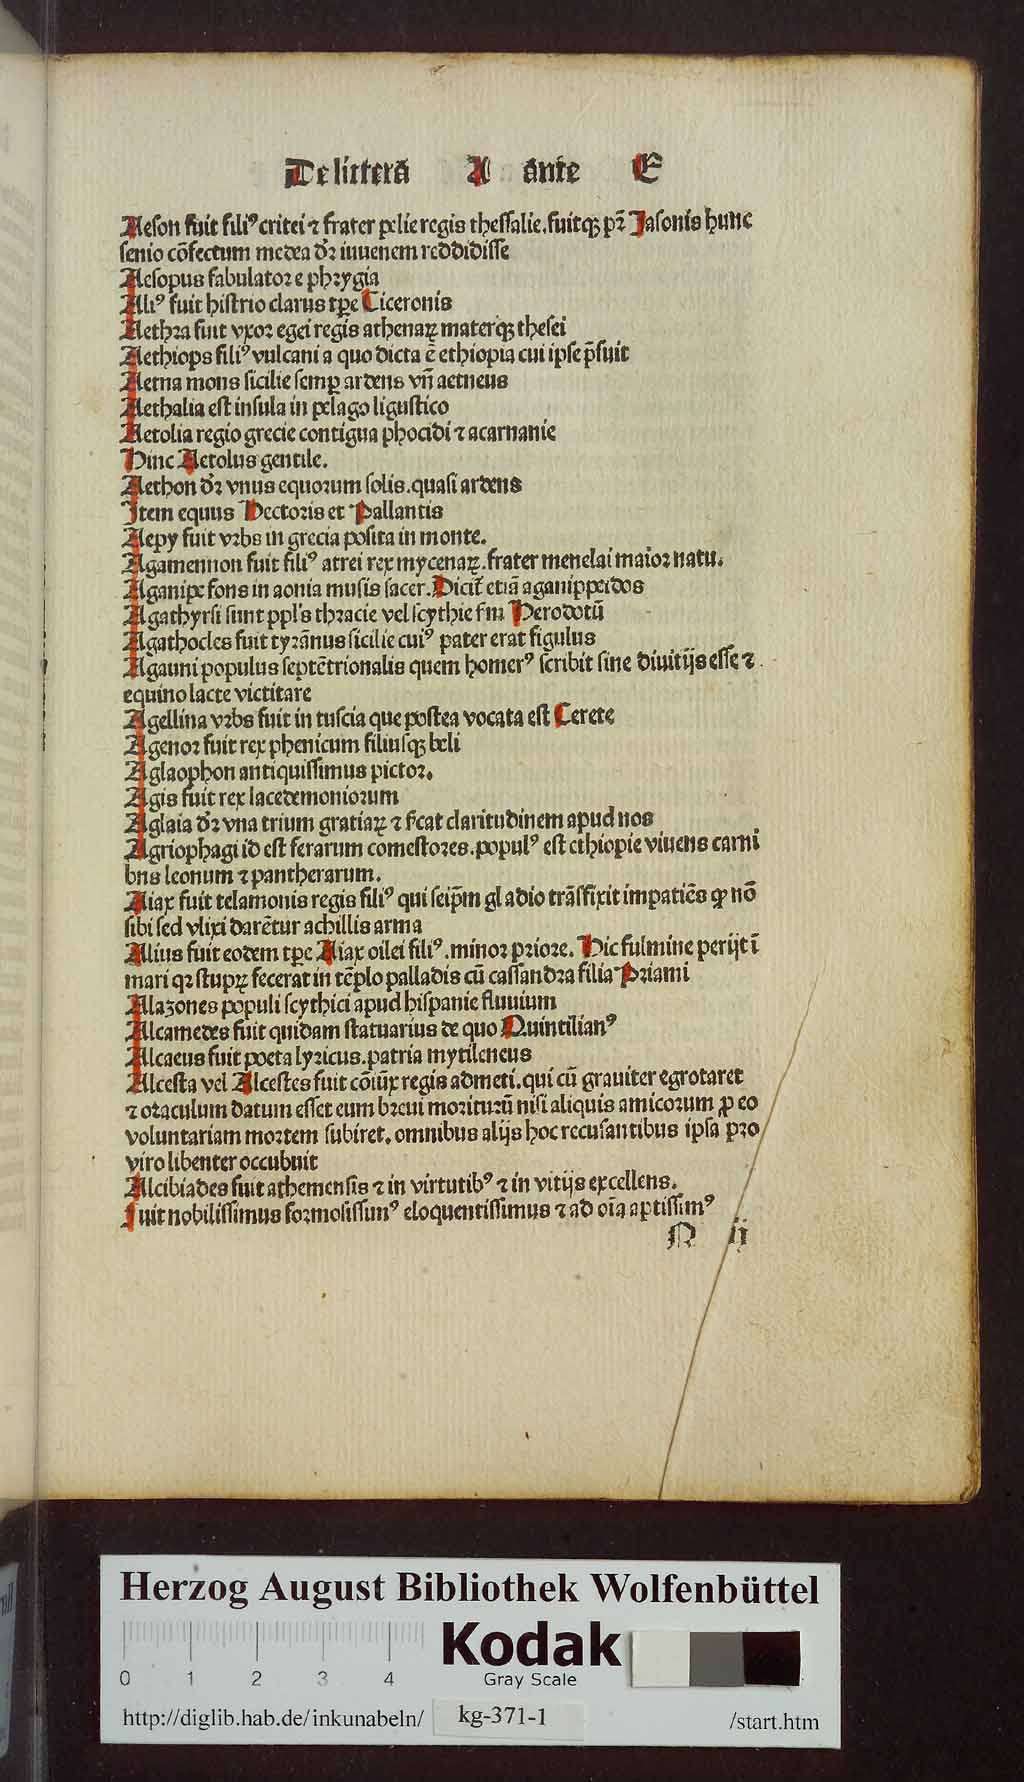 De litterā A ante E
Aeson fuit filiꝰ critei ⁊ frater pelie regis thessalie. fuitqꝫ pr̄ Jasonis hunc
senio cōfectum medea dr̄ iuuenem reddidisse
Aesopus fabulator e phrygia
Aliꝰ fuit histrio clarus tp̄e Ciceronis
Aethra fuit vxor egei regis athenaꝝ materqꝫ thesei
Aethiops filiꝰ vulcani a quo dicta ē ethiopia cui ipse p̄fuit
Aetna mons sicilie semꝑ ardens vn̄ aetneus
Aethalia est insula in pelago ligustico
Aetolia regio grecie contigua phocidi ⁊ acarnanie
Hinc Aetolus gentile.
Aethon dr̄ vnus equorum solis. quasi ardens
Item equus Hectoris et Pallantis
Aepy fuit vrbs in grecia posita in monte.
Agamennon fuit filiꝰ atrei rex mycenaꝝ. frater menelai maior natu.
Aganipe fons in aonia musis sacer. Dicit̄ etiā aganippeidos
Agathyrsi sunt ppl's thracie vel scythie fm Herodotū
Agathocles fuit tyrānus sicilie cuiꝰ pater erat figulus
Agauni populus septētrionalis quem homerꝰ scribit sine diuitijs esse ⁊
equino lacte victitare
Agellina vrbs fuit in tuscia que postea vocata est Cerete
Agenor fuit rex phenicum filiusqꝫ beli
Aglaophon antiquissimus pictor.
Agis fuit rex lacedemoniorum
Aglaia dr̄ vna trium gratiaꝝ ⁊ sc̄at claritudinem apud nos
Agriophagi id est ferarum comestores. populꝰ est ethiopie viuens carni
bns leonum ⁊ pantherarum.
Aiax fuit telamonis regis filiꝰ qui seip̄m gladio trāsfixit impatiēs ꝙ nō
sibi sed vlixi darētur achillis arma
Alius fuit eodem tp̄e Aiax oilei filiꝰ. minor priore. Hic fulmine perijt ī
mari qr stupꝝ fecerat in tēplo palladis cū cassandra filia Priami
Alazones populi scythici apud hispanie fluuium
Alcamedes fuit quidam statuarius de quo Quintilianꝰ
Alcaeus fuit poeta lyricus. patria mytileneus
Alcesta vel Alcestes fuit cōiūx regis admeti. qui cū grauiter egrotaret
⁊ oraculum datum esset eum breui moriturū nisi aliquis amicorum ꝓ eo
voluntariam mortem subiret. omnibus alijs hoc recusantibus ipsa pro
viro libenter occubuit
Alcibiades fuit athemensis ⁊ in virtutibꝰ ⁊ in vitijs excellens.
fuit nobilissimus formosissimꝰ eloquentissimus ⁊ ad oīa aptissimꝰ
N ij
Herzog August Bibliothek Wolfenbüttel
Kodak
Gray Scale
0 1 2 3 4
http://diglib.hab.de/inkunabeln/ kg-371-1 /start.htm